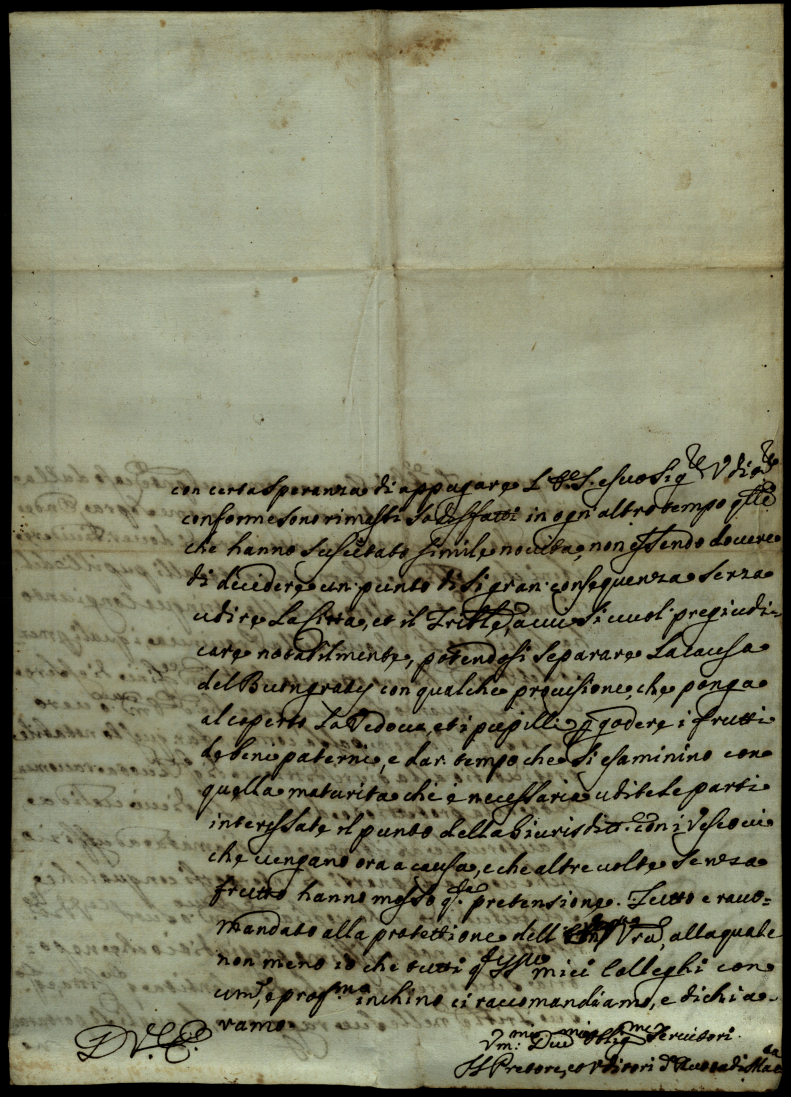 con certa speranza di appagare L' V.S. e suo Sig.re Vdi.re
conforme sono rimasti sodisfatti in ogn' altro tempo q.lli
che hanno suscitato simile novità, non essendo dovere
di decidere un punto di sì gran consequenza senza
udire La Città, et il Trib.le, a cui si vuol pregiudi-
care notabilmente, potendosi separare La causa
del Buongratij con qualche provisione, che ponga
al coperto La Vedova, et i pupilli p godere i frutti
de beni paterni, e dar tempo che si esaminino con
quella maturità che è necessaria udite le parti
interessate il punto della Giurisditt.e con i Vescovi
che vengano ora a causa, e che altre volte senza
frutto hanno mosso q.sta pretensione. Tutto e raco-
mandato alla protettione dell' Vra, alla quale
non meno io che tutti q.sti SS.ri miei Colleghi con
um.e, e prof.mo inchino ci raccomandiamo, e dichia-
ramo
D V. E.
Vm.mi Dev.mi Oblig.mi Servitori
Il Pretore, et Vditori d' Ruota di Mac.ta